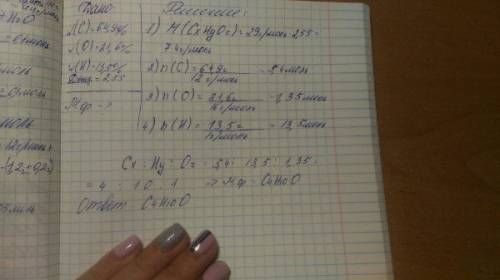 Дано:
Решение:
ω(C)=64,9%
ω(O)=21,6%
ω(H)=13,5%
Dвозд.=2,55
Мф - ?
1) M(CxHyOz)=29г/моль·2,55=
74г/моль
2) n(C)=64,9г/12г/моль=5,4моль
3) n(O)=21,6г/16г/моль=1,35моль
4) n(H)=13,5г/1г/моль=13,5моль
Cx:Hy:Oz=5,4:13,5:1,35=
=4:10:1 => Мф-C4H10O
Ответ: C4H10O